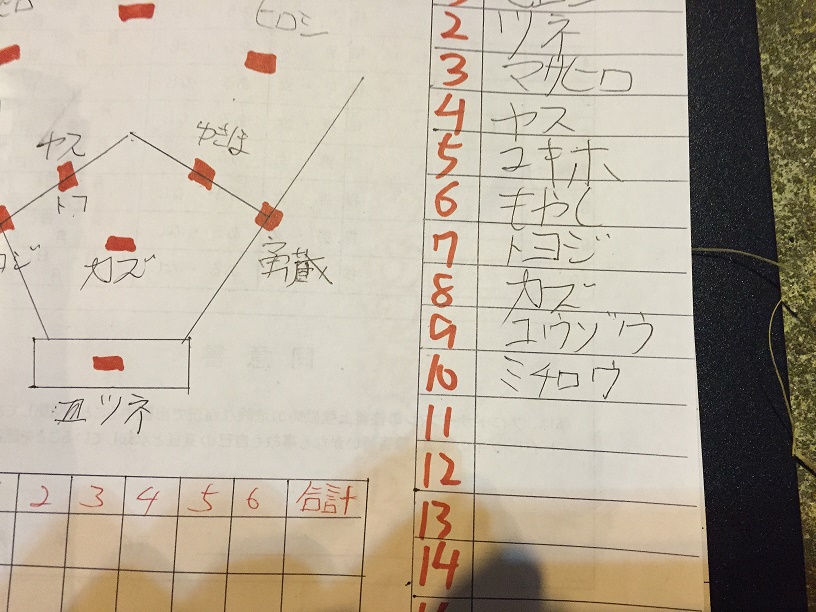 ヒロシ
ヤス
ゆきほ
カズ
勇蔵
ツネ
2 ツネ
3 マサヒロ
4 ヤス
5 ユキホ
6 もやし
7 トヨジ
8 カズ
9 ユウゾウ
10 ミチロウ
11
12
13
14
2 3 4 5 6 合計